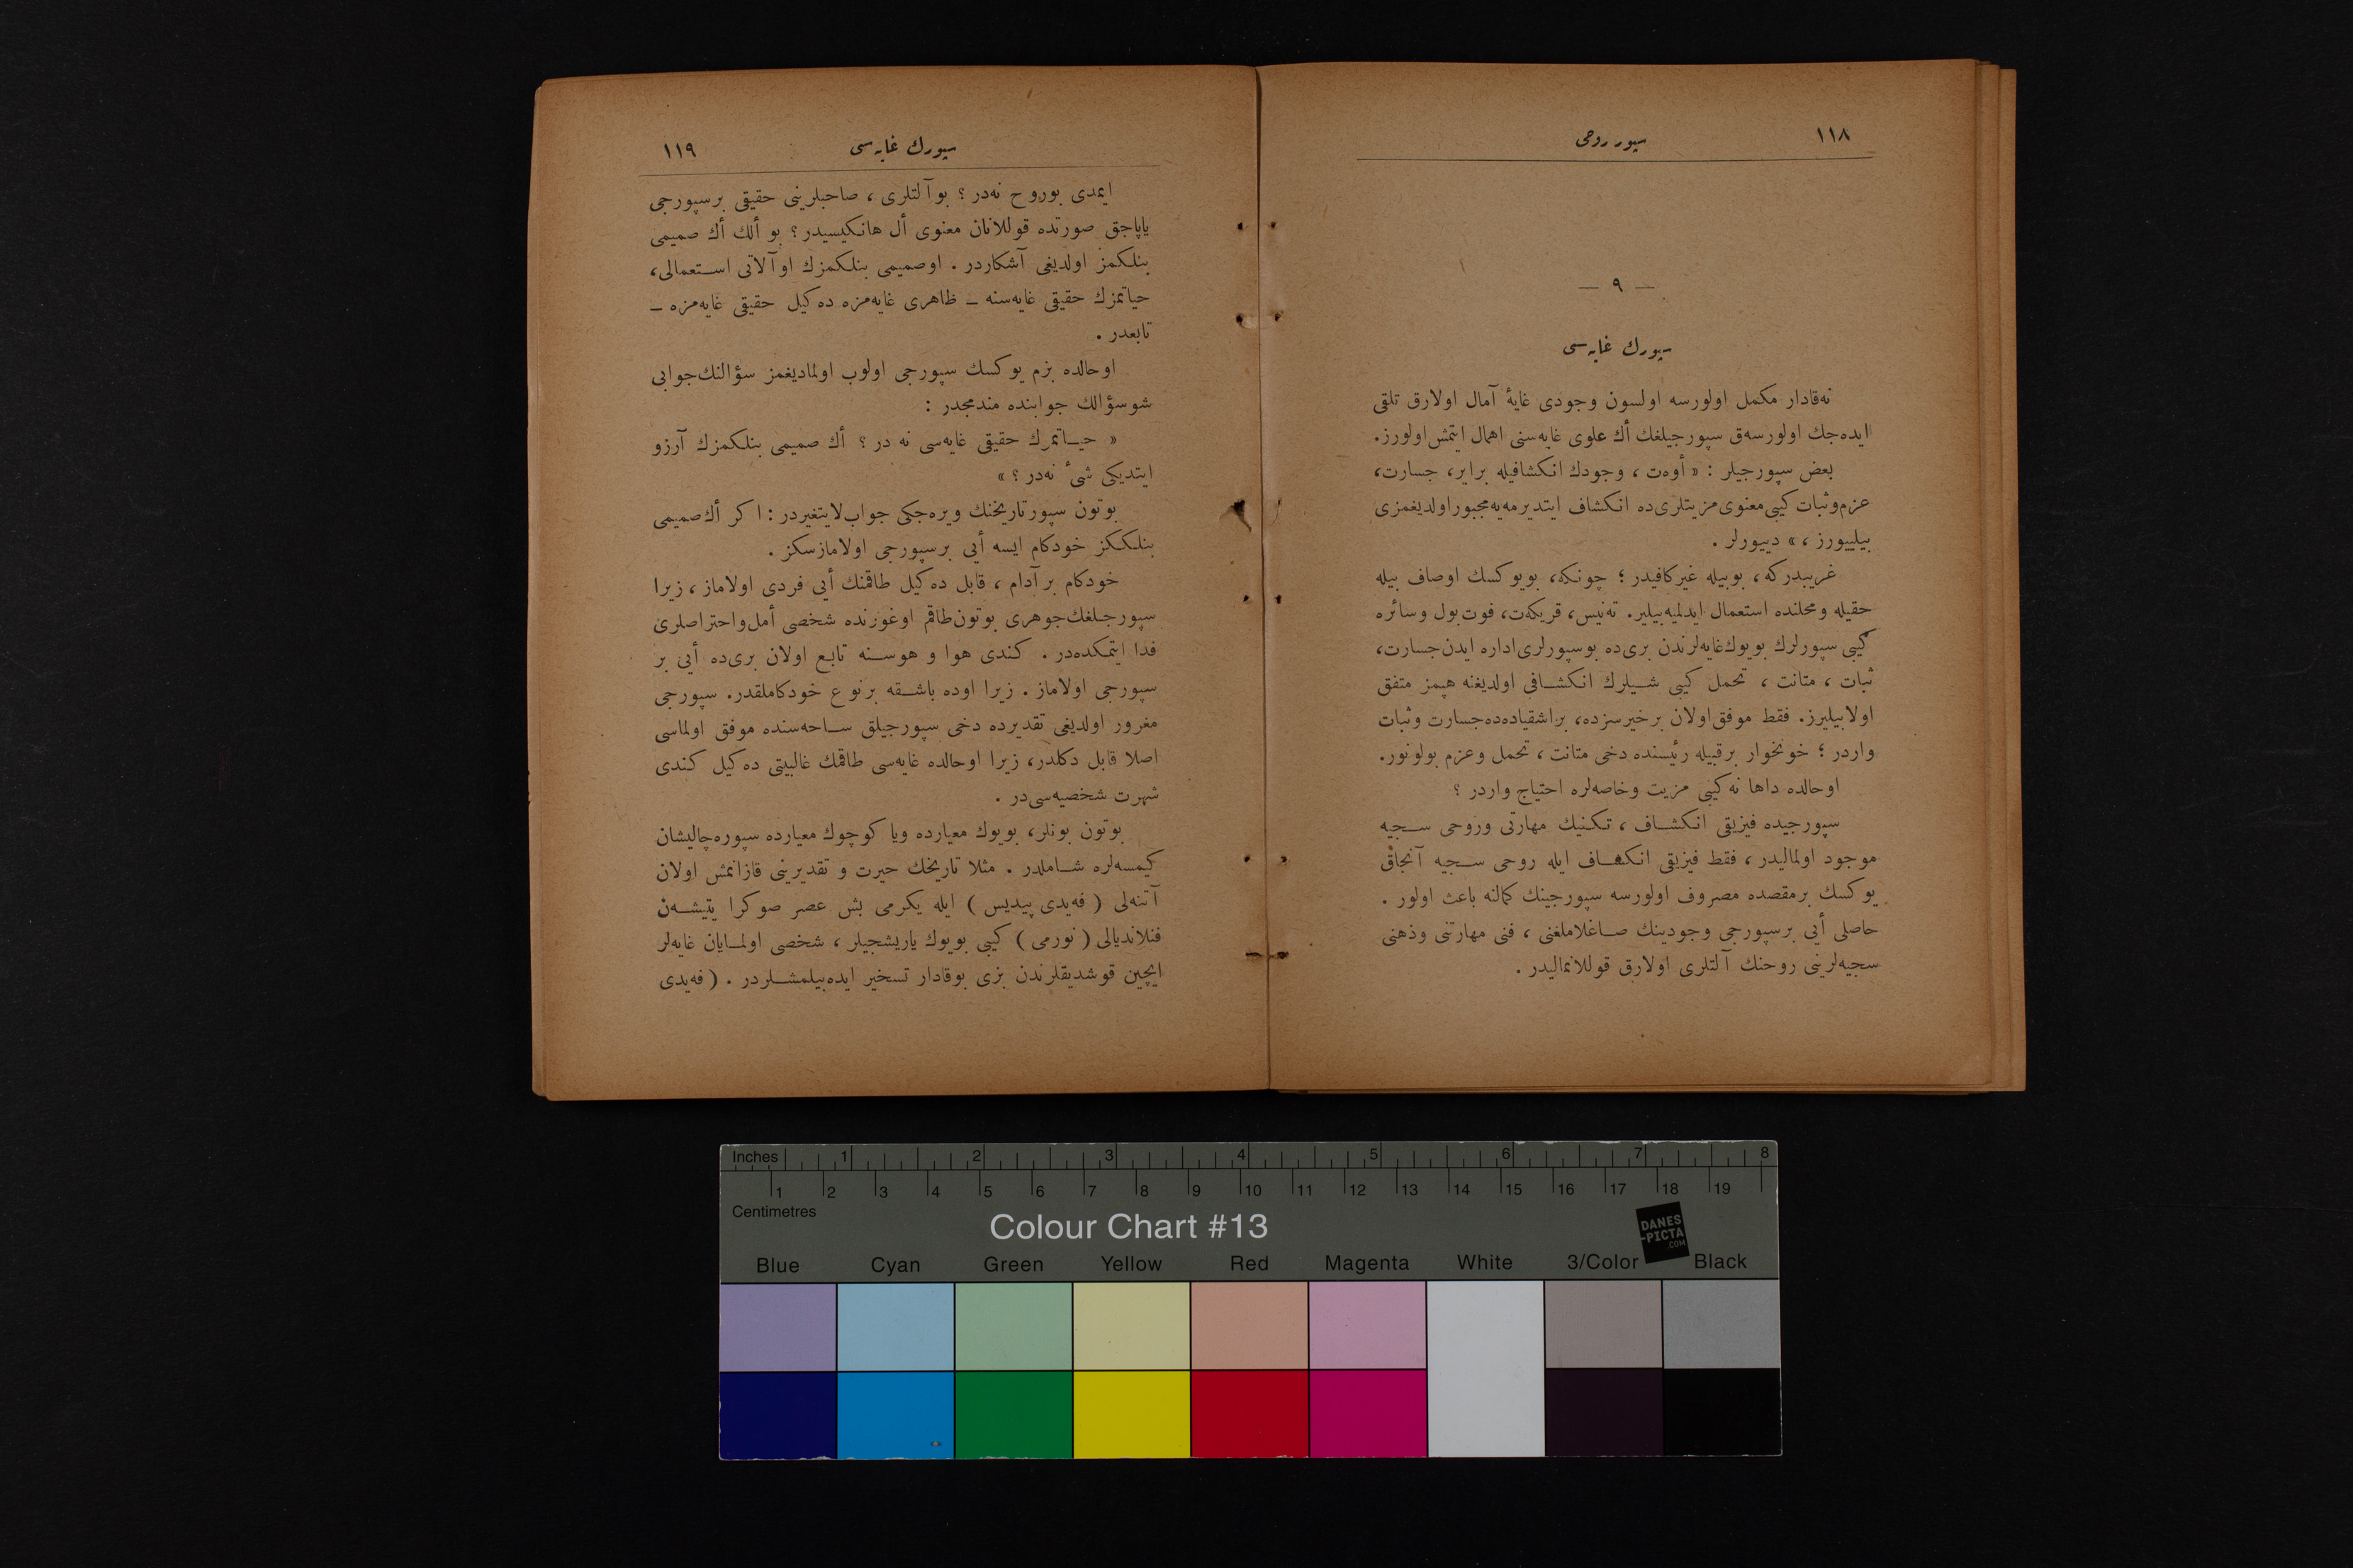 ١١٨
سپور روحی
— ٩ —
سپورك غایه‌سی
نه‌قادار مكمل اولورسه اولسون وجودی غایهٔ آمال اولارق تلقی
ایده‌جك اولورسه‌ق سپورجیلغك أڭ علوی غایه‌سنی اهمال ایتمش اولورز.
بعض سپورجیلر : « أوه‌ت ، وجودك انكشافیله برابر، جسارت،
عزم‌وثبات كیبی معنوی مزیتلری‌ده انكشاف ایتدیرمه‌یه مجبور اولدیغمزی
بیلییورز ، » دییورلر .
غریبدركه، بوبیله غیركافیدر ؛ چونكه، بویوكسك اوصاف بیله
حقیله ومحلنده استعمال ایدلمیه‌بیلیر. ته‌نیس، قریكه‌ت، فوت‌بول وسائره
كیبی سپورلرك بویوك غایه‌لرندن بری‌ده بوسپورلری اداره ایدن جسارت،
ثبات ، متانت ، تحمل كیبی شیلرك انكشافی اولدیغنه هپمز متفق
اولابیلیرز. فقط موفق اولان برخیرسزده، براشقیاده‌ده جسارت وثبات
واردر ؛ خونخوار برقبیله رئیسنده دخی متانت ، تحمل وعزم بولونور.
اوحالده داها نه كیبی مزیت وخاصه‌لره احتیاج واردر ؟
سپورجیده فیزیقی انكشاف ، تكنیك مهارتی وروحی سجیه
موجود اولمالیدر ، فقط فیزیقی انكشاف ایله روحی سجیه آنجاق
یوكسك برمقصده مصروف اولورسه سپورجینك كمالنه باعث اولور .
حاصلی أیی برسپورجی وجودینك صاغلاملغنی ، فنی مهارتنی وذهنی
سجیه‌لرینی روحنك آلتلری اولارق قوللانمالیدر .
سپورك غایه‌سی
١١٩
ایمدی بوروح نه‌در ؟ بوآلتلری ، صاحبلرینی حقیقی برسپورجی
یاپاجق صورتده قوللانان معنوی أل هانكیسیدر ؟ بو ألك أڭ صمیمی
بنلكمز اولدیغی آشكاردر . اوصمیمی بنلكمزك اوآلاتی استعمالی،
حیاتمزك حقیقی غایه‌سنه – ظاهری غایه‌مزه ده‌كیل حقیقی غایه‌مزه –
تابعدر .
اوحالده بزم یوكسك سپورجی اولوب اولمادیغمز سؤالنك جوابی
شوسؤالك جوابنده مندمجدر :
« حیاتمزك حقیقی غایه‌سی نه در ؟ أڭ صمیمی بنلكمزك آرزو
ایتدیكی شیٔ نه‌در ؟ »
بوتون سپورتاریخنك ویره‌جكی جواب لایتغیردر : اكر أڭ صمیمی
بنلككز خودكام ایسه أیی برسپورجی اولامازسكز .
خودكام بر آدام ، قابل ده‌كیل طاقمنك أیی فردی اولاماز ، زیرا
سپورجلغك جوهری بوتون طاقم اوغورنده شخصی أمل‌واحتراصلری
فدا ایتمكده‌در . كندی هوا و هوسنه تابع اولان بری‌ده أیی بر
سپورجی اولاماز . زیرا اوده باشقه برنوع خودكاملقدر. سپورجی
مغرور اولدیغی تقدیرده دخی سپورجیلق ساحه‌سنده موفق اولماسی
اصلا قابل دكلدر، زیرا اوحالده غایه‌سی طاقمك غالبیتی ده‌كیل كندی
شهرت شخصیه‌سی‌در .
بوتون بونلر، بویوك معیارده ویا كوچوك معیارده سپوره‌چالیشان
كیمسه‌لره شاملدر . مثلا تاریخك حیرت و تقدیرینی قازانمش اولان
آتنه‌لی ( فه‌یدی پیدیس ) ایله یكرمی بش عصر صوكرا یتیشه‌ن
فنلاندیالی ( نورمی ) كیبی بویوك یاریشجیلر ، شخصی اولمایان غایه‌لر
ایچین قوشدیقلرندن بزی بوقادار تسخیر ایده‌بیلمشلردر . ( فه‌یدی
Inches 1 2 3 4 5 6 7 8
1 2 3 4 5 6 7 8 9 10 11 12 13 14 15 16 17 18 19
Centimetres
Colour Chart #13
DANES
-PICTA
.COM
Blue Cyan Green Yellow Red Magenta White 3/Color Black